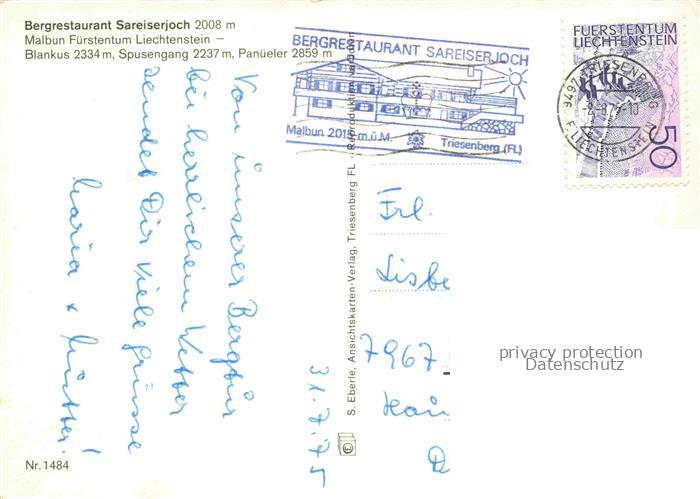 Bergrestaurant Sareiserjoch 2008 m
Malbun Fürstentum Liechtenstein –
Blankus 2334 m, Spusengang 2237 m, Panüeler 2859 m
BERGRESTAURANT SAREISERJOCH
Malbun 2015 m.ü.M. Triesenberg (FL)
FUERSTENTUM
LIECHTENSTEIN
50
9497 TRIESENBERG
F. LIECHTENSTEIN
Von unserer Bergtour
bei herrlichem Wetter
sendet Dir viele Grüsse
Maria + Mutter!
31.7.75
S. Eberle, Ansichtskarten-Verlag, Triesenberg FL - Reproduktion verboten
Frl.
Lisbe
7967
D
privacy protection
Datenschutz
Nr. 1484